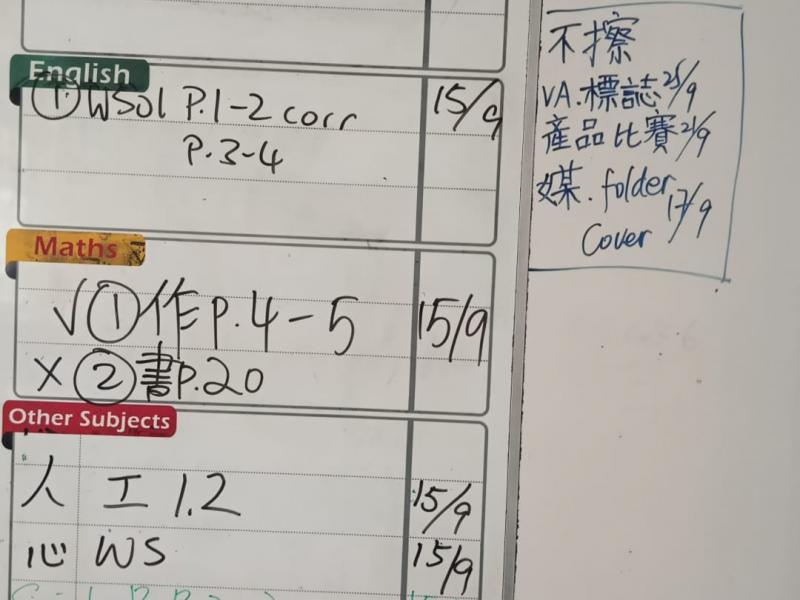 English
① WS01 P.1-2 corr 15/9
P.3-4
Maths
√ ① 作 P.4-5 15/9
× ② 書 P.20
Other Subjects
人 工 1.2 15/9
心 WS 15/9
不擦
VA.標誌 25/9
產品比賽 21/9
媒.folder 17/9
Cover